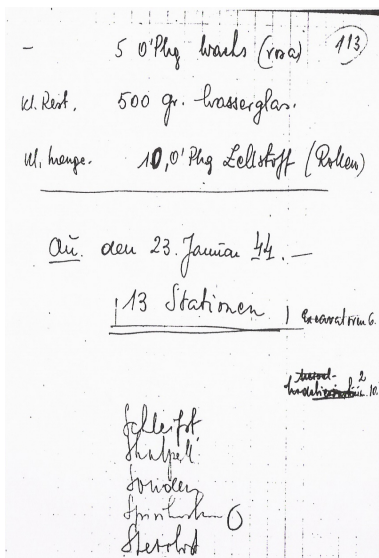 113
- 5 O'Pkg Wachs (rosa)
Kl. Rest. 500 gr. Wasserglas.
Kl. Menge. 10, O'Pkg Zellstoff (Rollen)
Au. den 23. Januar 44. —
13 Stationen
Excavatoren 6.
2
10.
Schleifst.
Skalpell.
Sonden